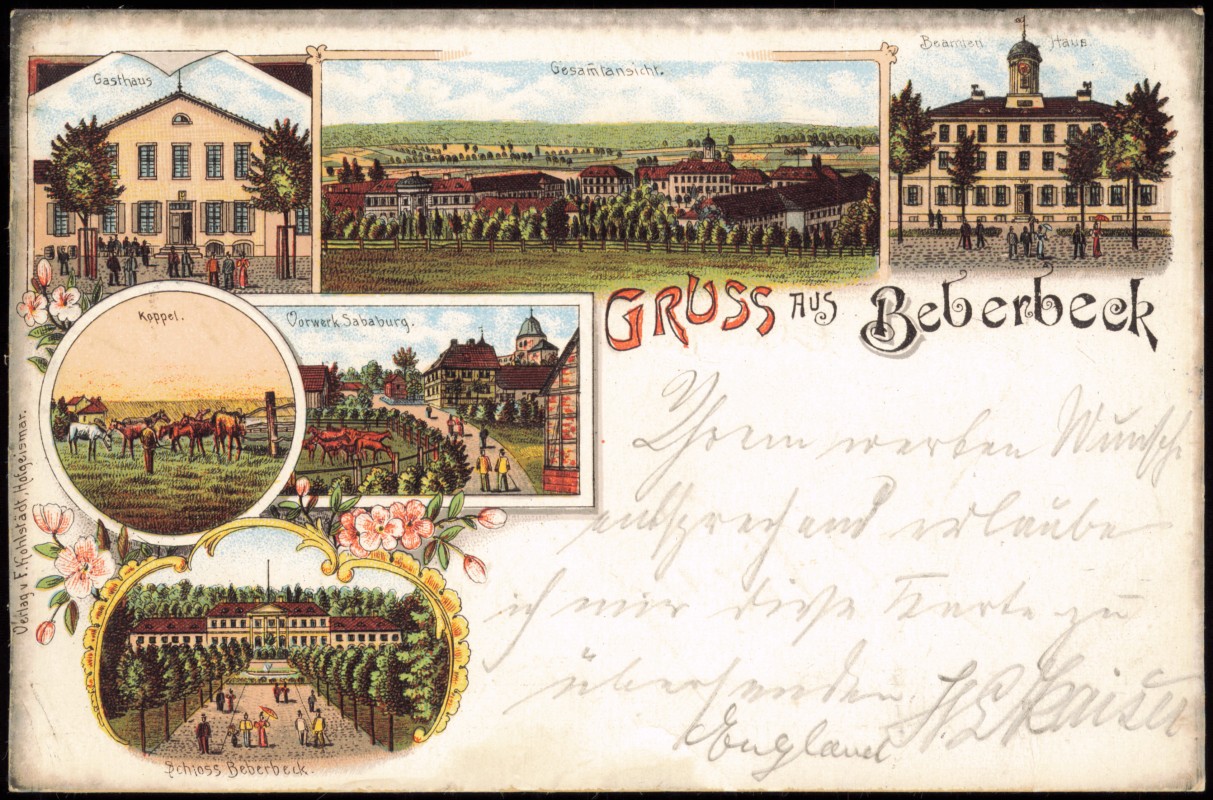 Gasthaus
Gesamtansicht.
Beamten Haus
GRUSS AUS Beberbeck
Koppel.
Vorwerk Sababurg.
Verlag v. F. Kohlstädt, Hofgeismar.
Schloss Beberbeck.
Ihrem werten Wunsche
entsprechend erlaube
ich mir diese Karte zu
übersenden.
England
Kaiser